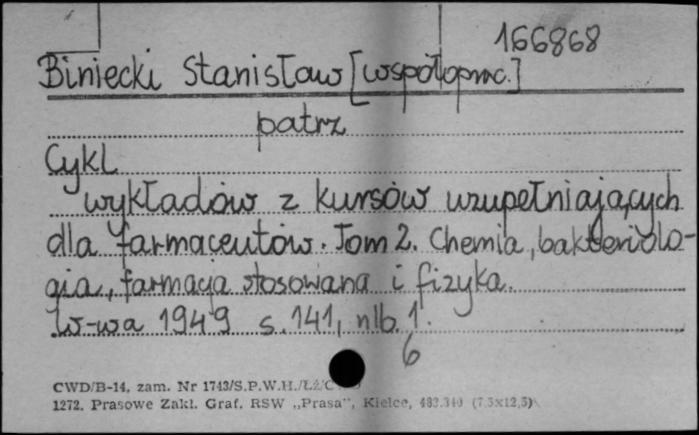 166868
Biniecki Stanisław [współoprac.]
patrz
Cykl
wykładów z kursów uzupełniających
dla farmaceutów. Tom 2. Chemia, bakteriolo-
gia, farmacja stosowana i fizyka.
W-wa 1949 s. 141, nlb. 1.
6
CWD/B-14, zam. Nr 1743/S.P.W.H./ŁŻ/C
1272. Prasowe Zakł. Graf. RSW „Prasa”, Kielce, 483.340 (7,5x12,5)